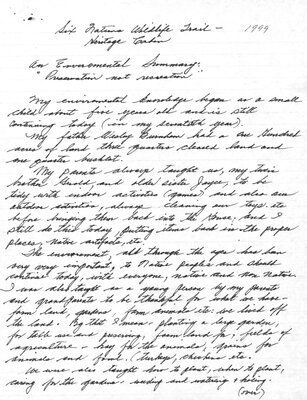 Six Nations Wildlife Trail - 1999
Heritage Cabin
An Enviromental Summary:
"Preservation not recreation"
My enviromental knowledge began as a small
child about five years old and is still
continuing today (in my seventieth year).
My father Wesley had a one Hundred
acres of land three quarter cleared land and
one quarter bushlot.
My parents always taught us, my twin
brother and older sister Joyce, to be
tidy with indoor activities (games) and also our
outdoor activities, always cleaning our toys etc
before bringing them back into the house, and I
still do this today putting items back in the proper
places, native artifacts, etc.
The enviroment, all through the ages has been
very very important, to Native peoples and should
be today with everyone, native and non Native.
I was also taught as a young person by my parents
and grandparents to be thankful for what we have
from land, gardens, farm animals etc we lived off
the land. By that I mean - planting a large garden,
for table use and preserving, farm land for fields of
agriculture - hay for the animals, grains for
animals and fowl. (turkey, chickens etc.
We were also taught how to plant, when to plant,
caring for the gardens - weeding and watering & hoeing.
(over)